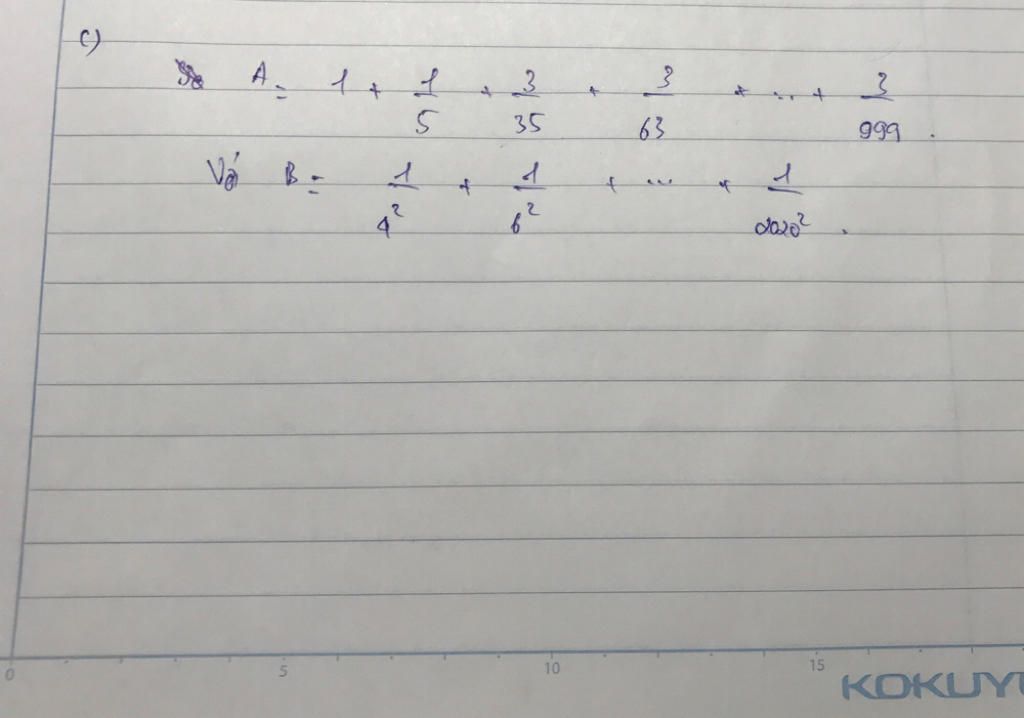 c)
A = 1 + 1/5 + 3/35 + 3/63 + ... + 3/999.
Và B = 1/4² + 1/6² + ... + 1/2020².
0 5 10 15
KOKUY